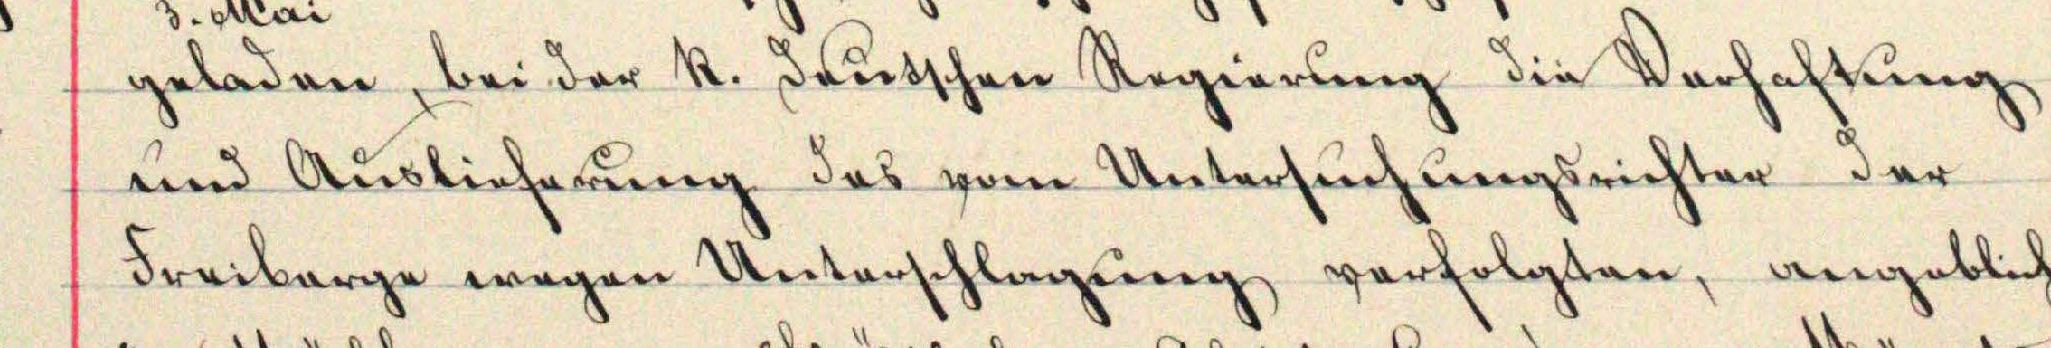 3. Mai
geladen, bei der K. deutschen Regierung die Verhaftung
und Auslieferung des vom Untersuchungsrichter der
Freiberge wegen Unterschlagung verfolgten, angeblich